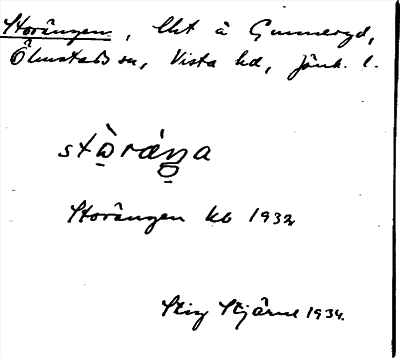 Storängen, lht å Gunneryd,
Ölmstads sn, Vista hd, Jönk. l.
Storängen kb 1932
Stig Stjärne 1934.